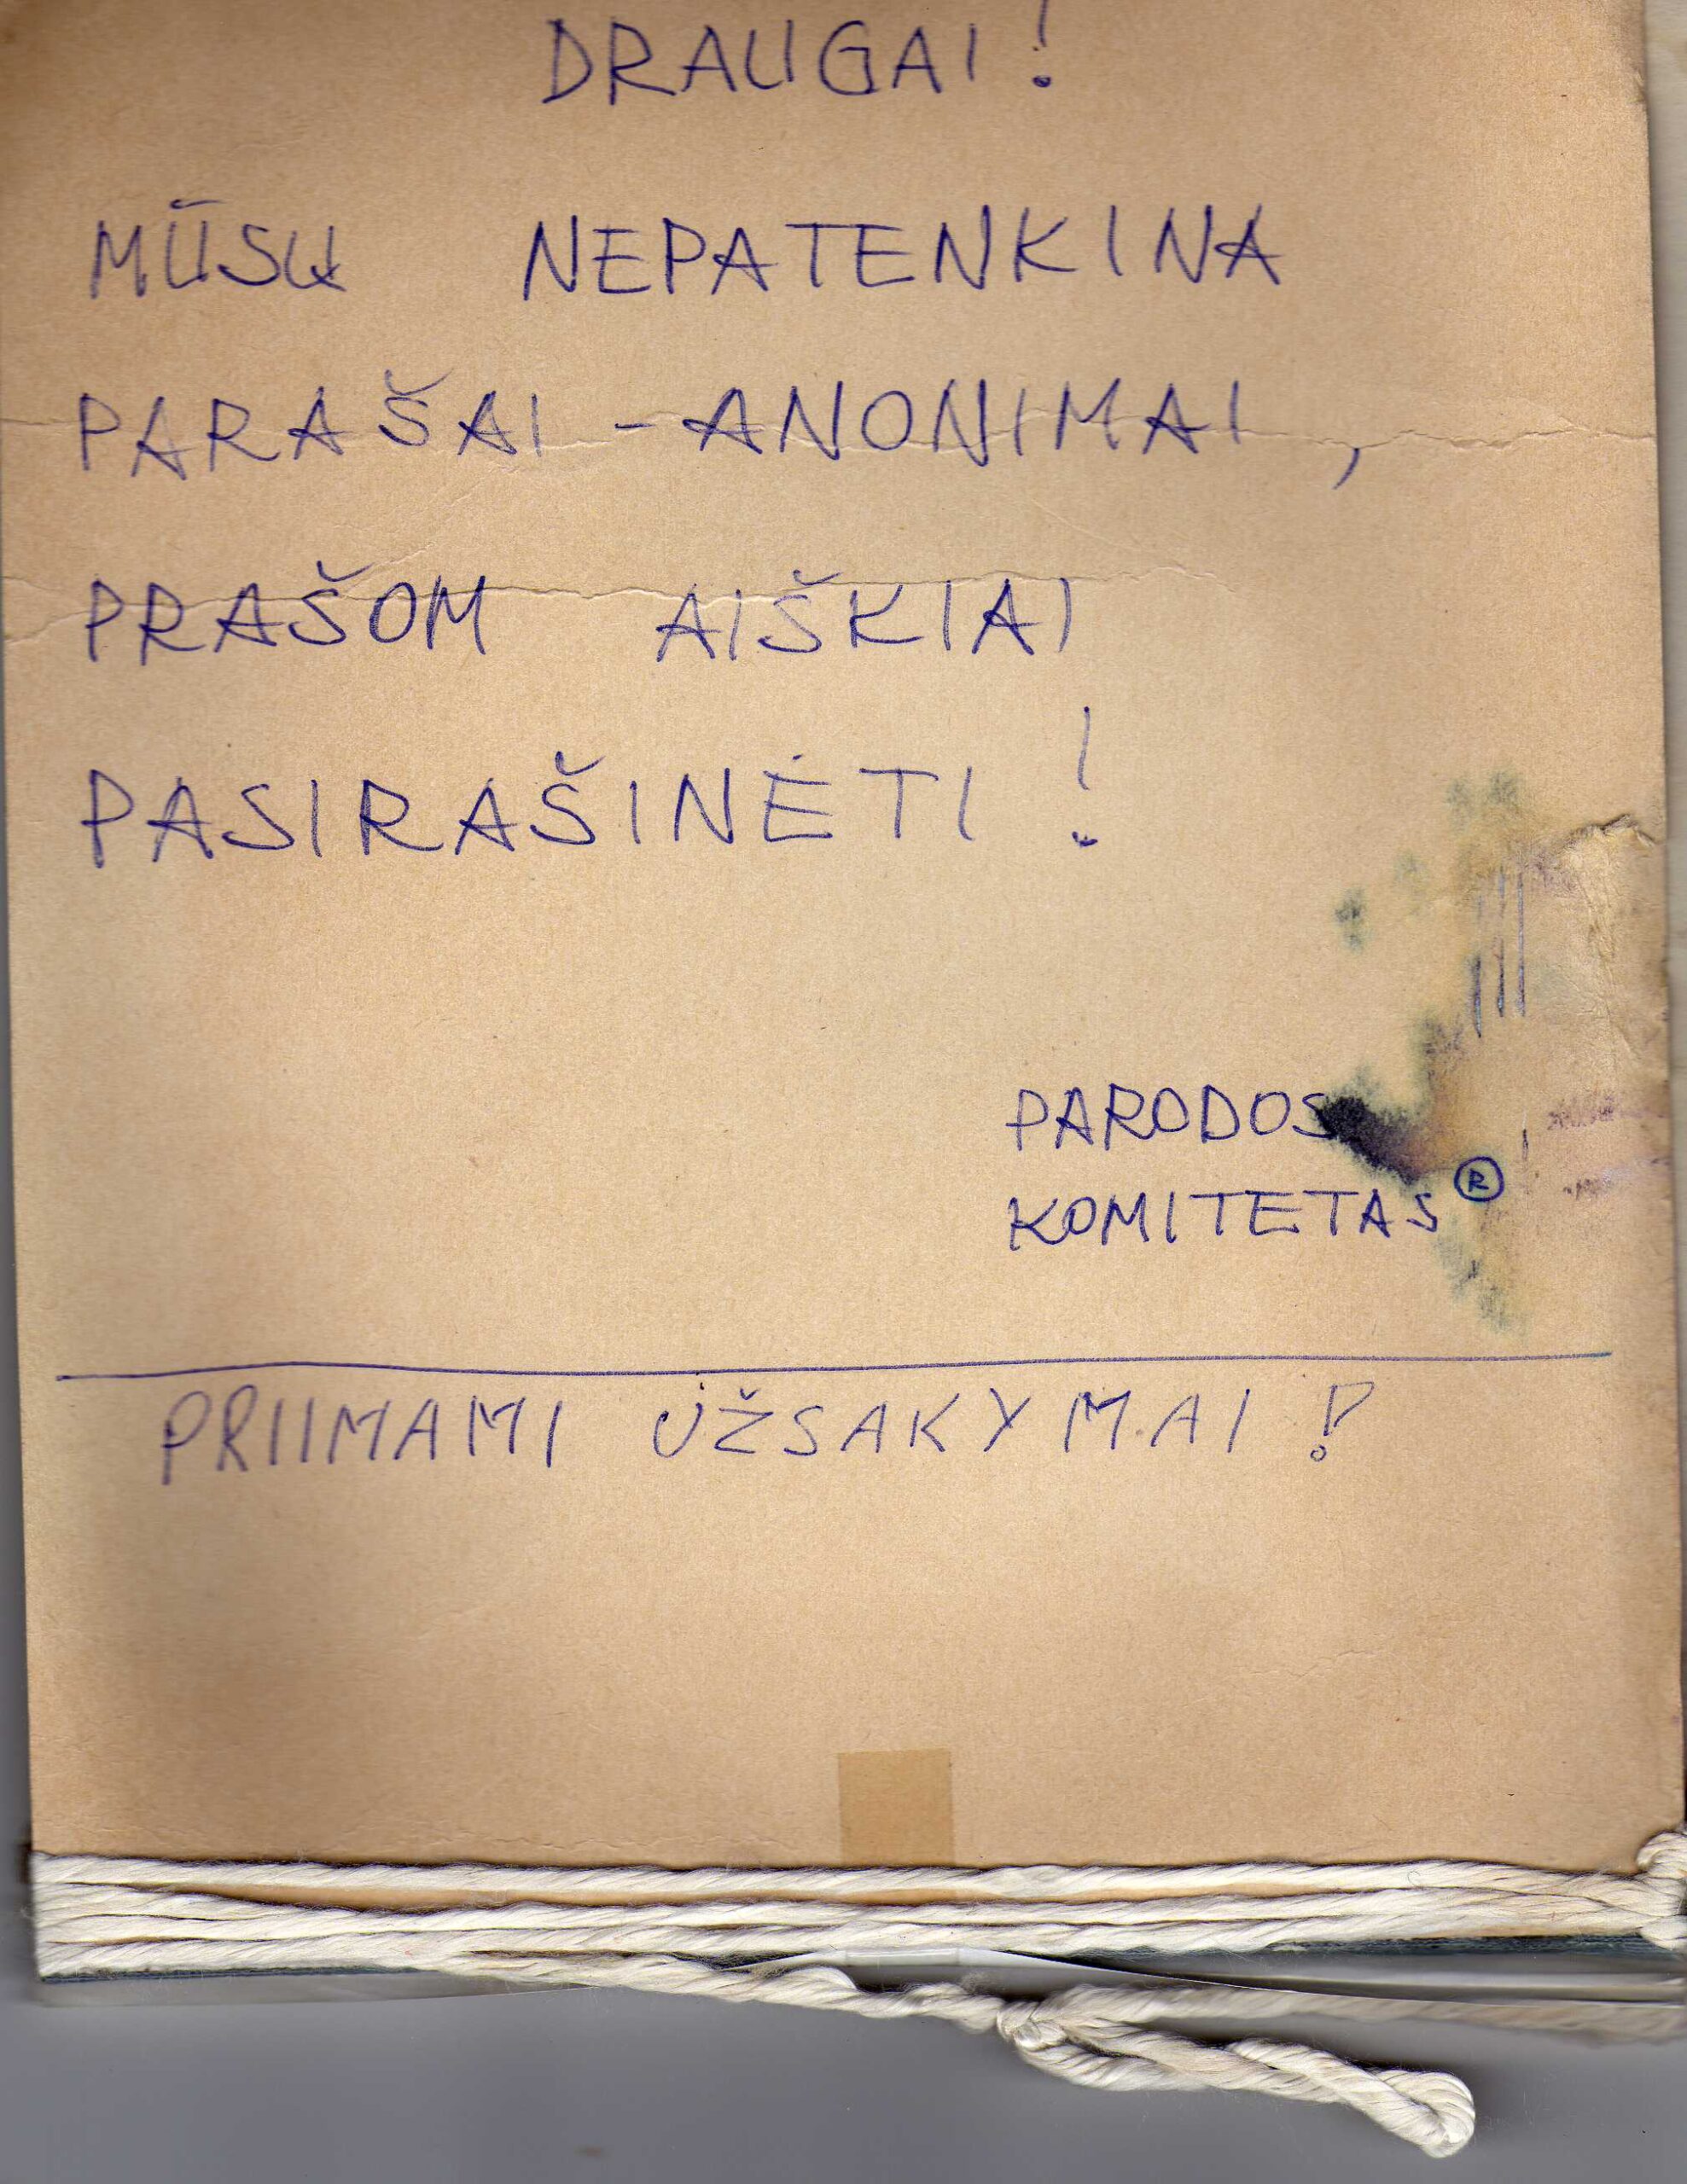 DRAUGAI!
MŪSŲ NEPATENKINA
PARAŠAI - ANONIMAI,
PRAŠOM AIŠKIAI
PASIRAŠINĖTI!
PARODOS
KOMITETAS ®
PRIIMAMI UŽSAKYMAI!